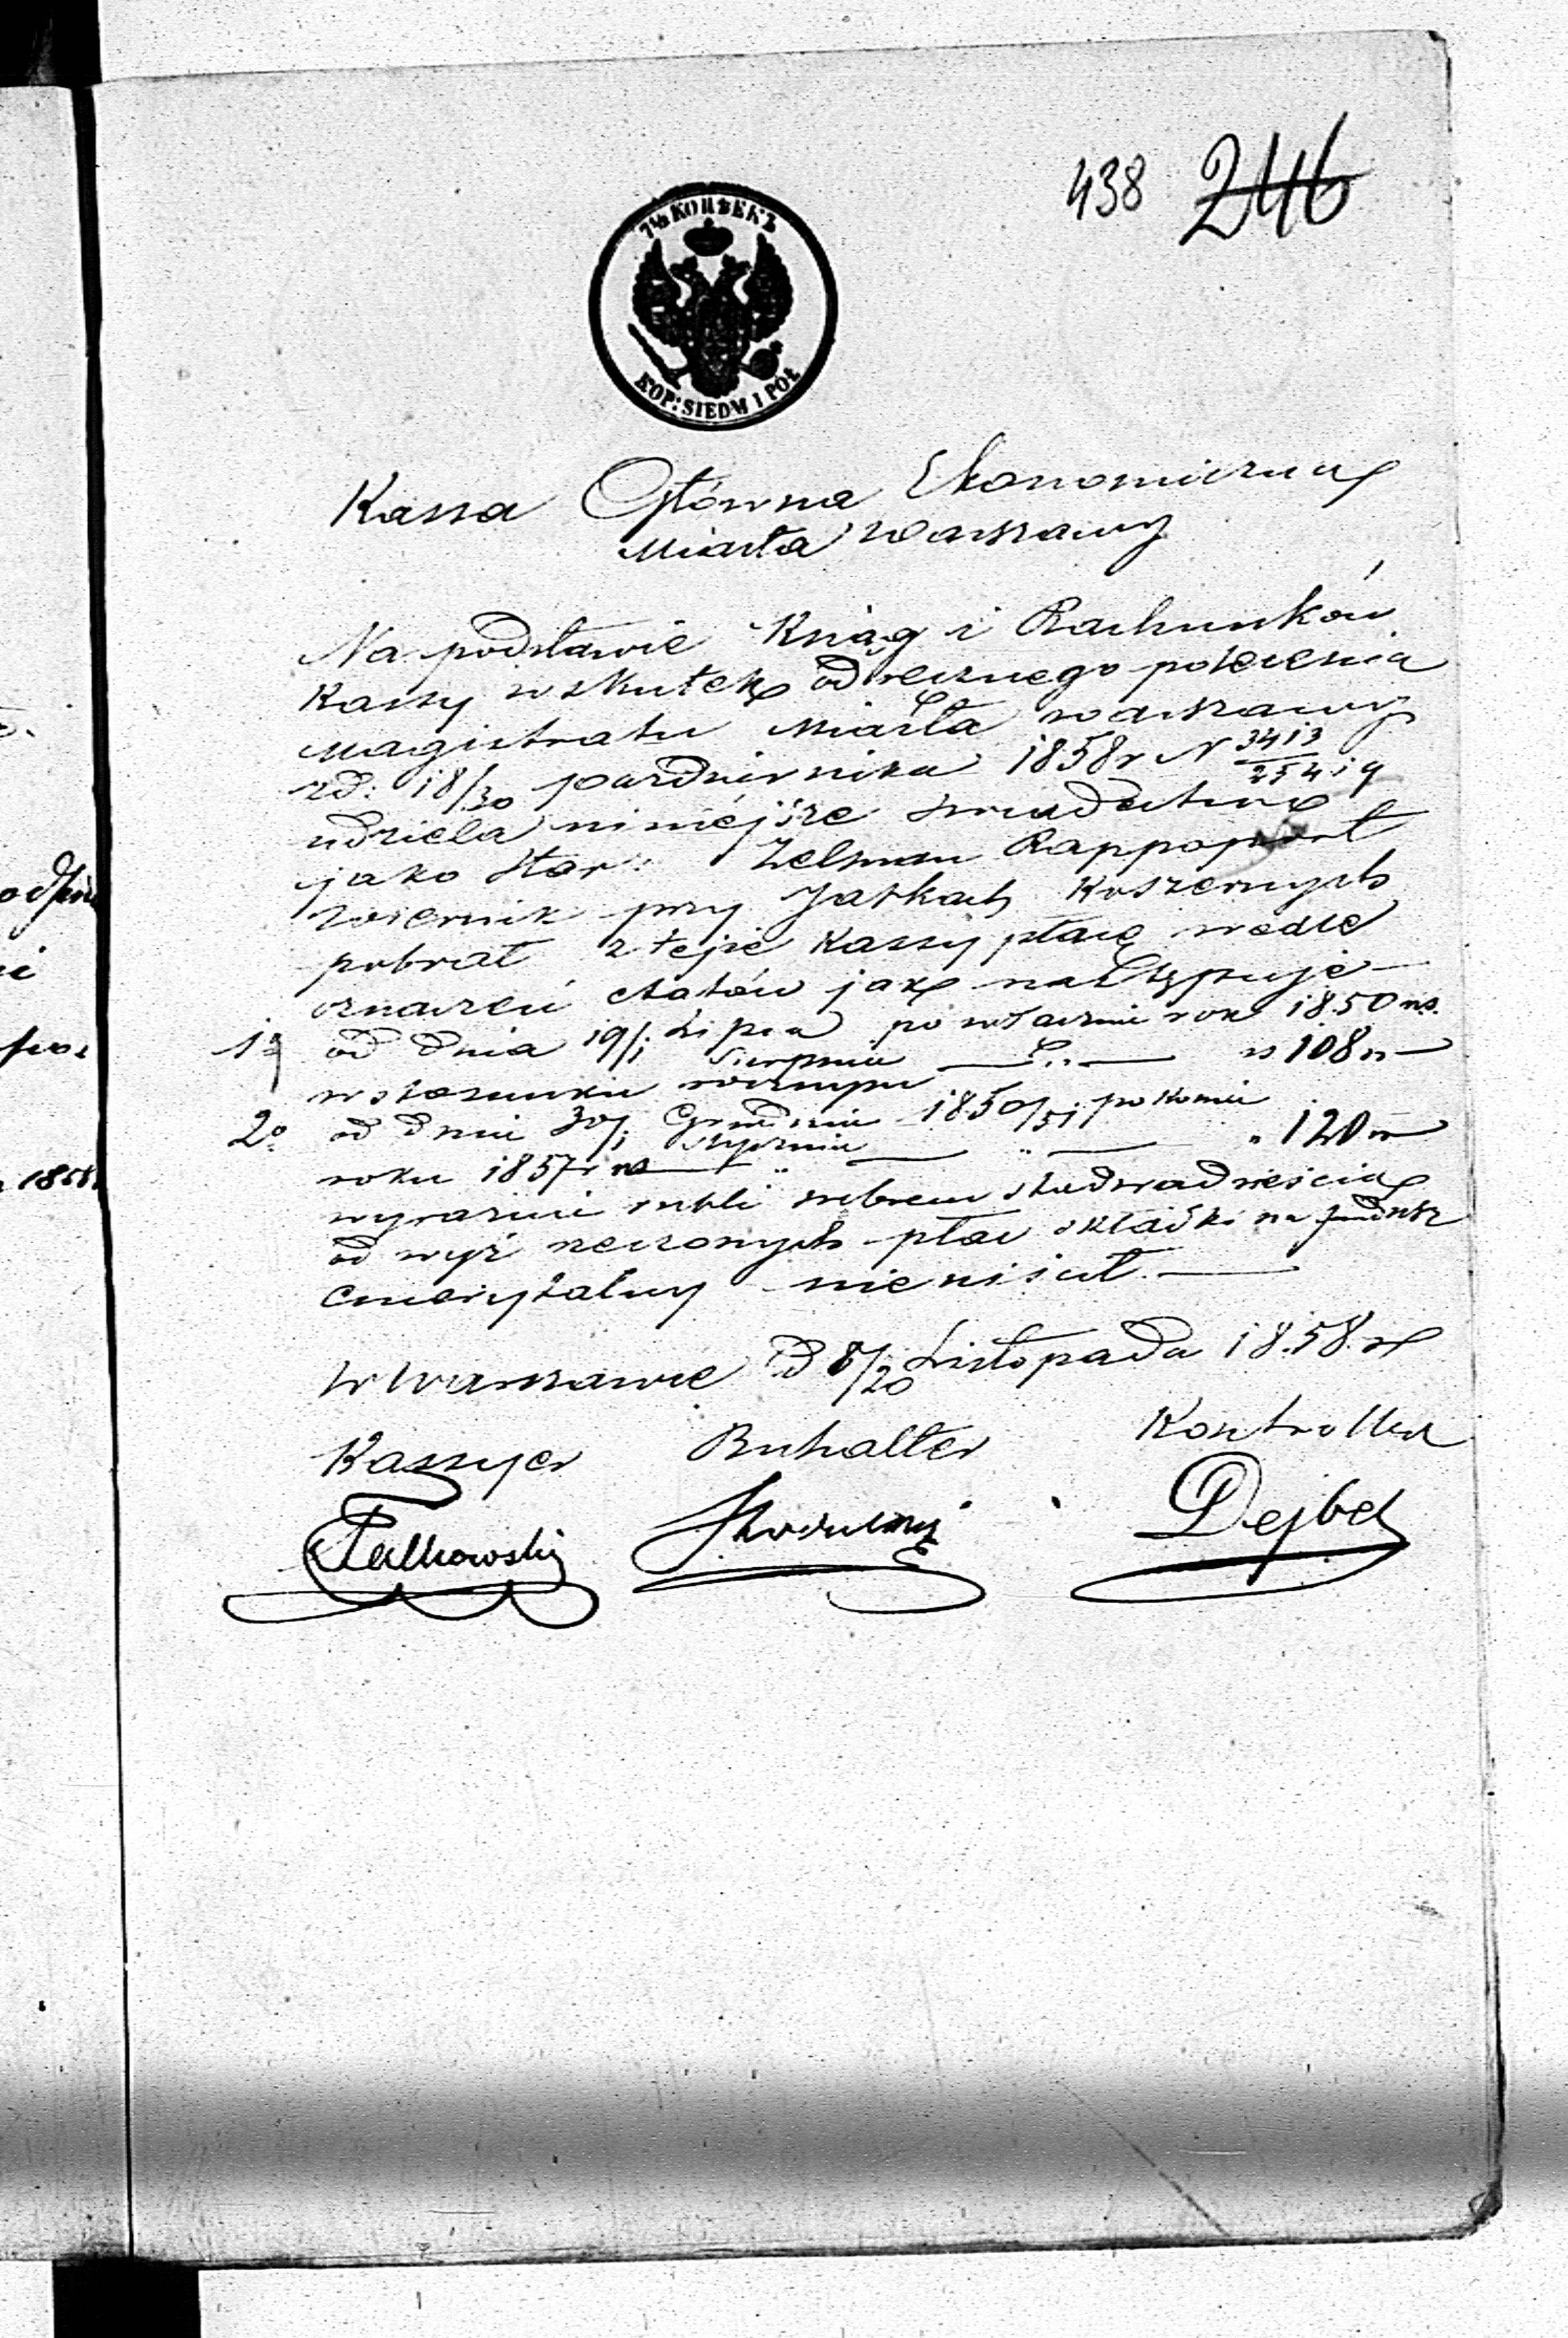 438 246
7½ КОПѢЕКЪ
KOP: SIEDM I PÓŁ
Kassa Główna Ekonomiczna
Miasta Warszawy
Na podstawie Ksiąg i Rachunków
Kassy w skutek odręcznego polecenia
Magistratu Miasta Warszawy
zd: 18/30 Pazdziernika 1858 r N 3413/25419
udziela niniejsze świadectwo
jako Star: Zelman Rappoport
wiernik przy Jatkach Koszernych
pobrał z tejże Kassy płacę wedle
oznaczeń etatów jak następuje
1º od dnia 19/1 Lipca/Sierpnia po włącznie rok 1850 rs. 108
w stosunku rocznym
2º od dnia 20/1 Grudnia/Stycznia 1850/51 po koniec
roku 1857 r rs " 120
wyraźnie rubli srebrem sto dwadzieścia
od wyż rzeczonych płac składki na fundusz
emerytalny nie uiścił.
w Warszawie d 8/20 Listopada 1858 r
Kassyer Buhalter Kontroller
Falkowski Dejbel
odpis
1858